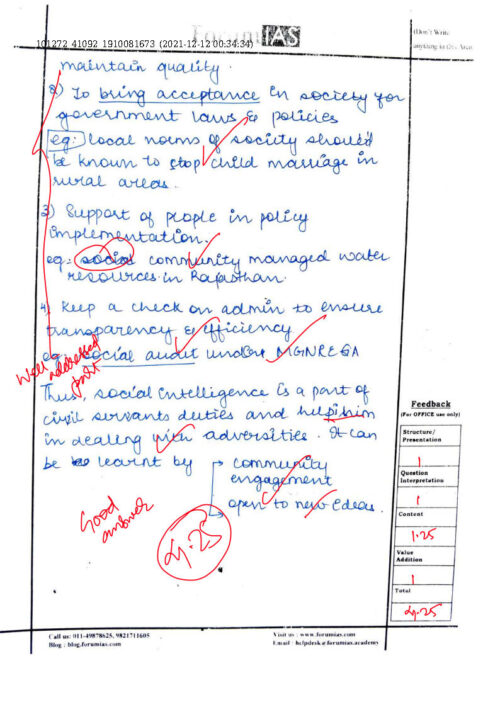 ForumIAS
101272 41092 1910081673 (2021-12-12 00:34:34)
(Don't Write
anything in this Area)
maintain quality.
2) To bring acceptance in society for
government laws & policies
eg: local norms of society should
be known to stop child marriage in
rural areas.
3) Support of people in policy
implementation.
eg: social community managed water
resources in Rajasthan.
4) Keep a check on admin to ensure
transparency & efficiency
eg: social audit under MGNREGA
Well addressed part
Thus, social intelligence is a part of
civil servants duties and help him
in dealing with adversities. It can
be learnt by → community
engagement
→ open to new ideas.
Good
answer
4.25
Feedback
(For OFFICE use only)
Structure/
Presentation
1
Question
Interpretation
1
Content
1.25
Value
Addition
1
Total
4.25
Call us: 011-49878625, 9821711605
Blog : blog.forumias.com
Visit us : www.forumias.com
Email : helpdesk@forumias.academy